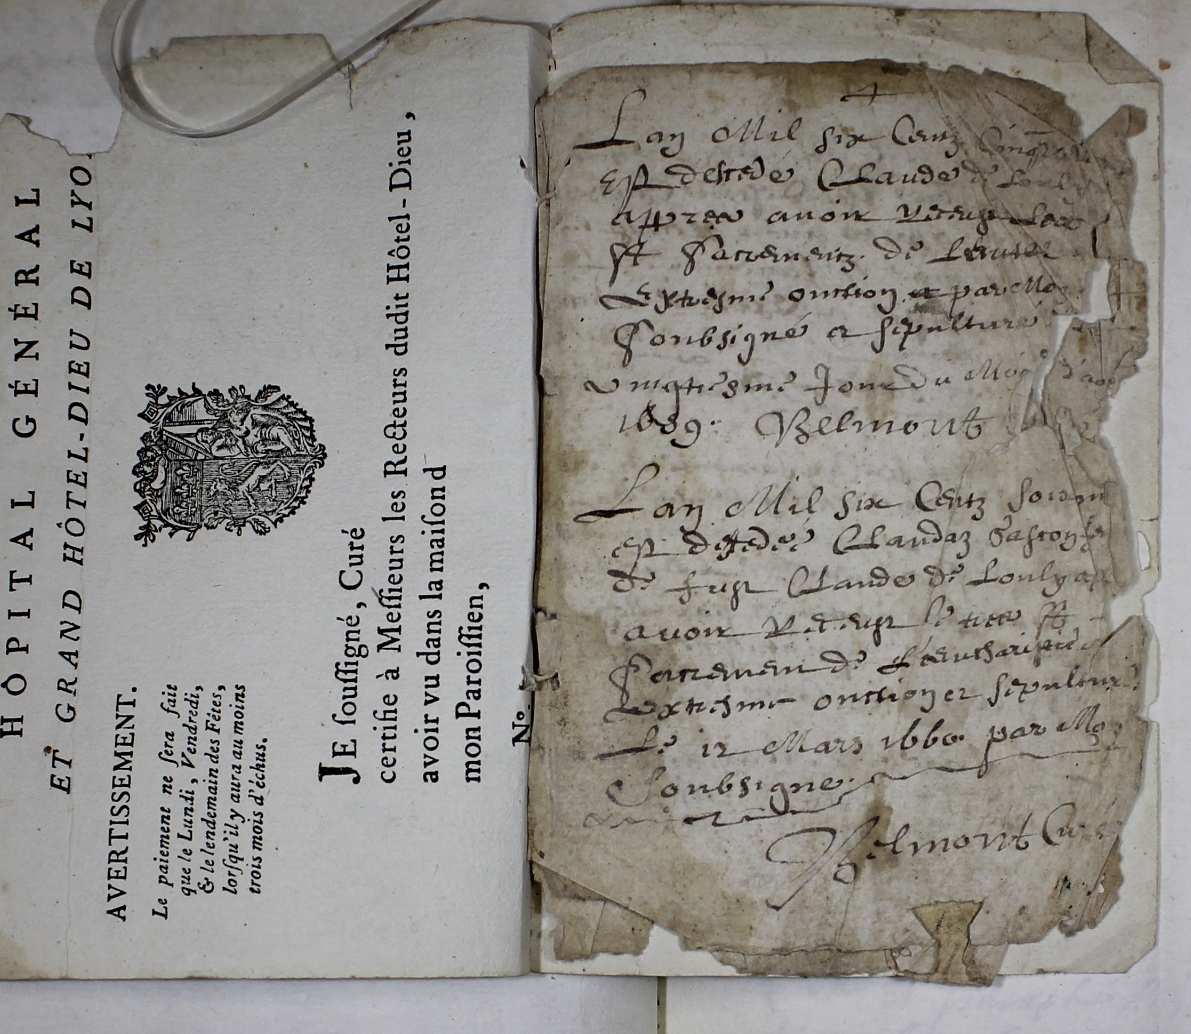 HÔPITAL GÉNÉRAL
ET GRAND HÔTEL-DIEU DE LYO
AVERTISSEMENT.
Le paiement ne ſera fait
que le Lundi, Vendredi,
& le lendemain des Fêtes,
lorſqu'il y aura au moins
trois mois d'échus.
JE ſouſſigné, Curé
certifie à Meſſieurs les Recteurs dudit Hôtel-Dieu,
avoir vu dans la maiſon d
mon Paroiſſien,
N°.
Lan Mil six Centz Cinq
est descedé Claude de Loul
appres avoir receup les
sts Sacrementz de
Extresme onction et par Moy
Soubsigné et sepulture
vingtiesme Jour du Moys d'
1659. Belmont
Lan Mil six Centz soixan
est descedéé Claudaz
de fust Claude de Louly
avoir receupt sts
sacrement de Leeucharistie
Extresme onction et sepultur
Le 12 Mars 1660. par Moy
Soubsigne
Belmont Curé